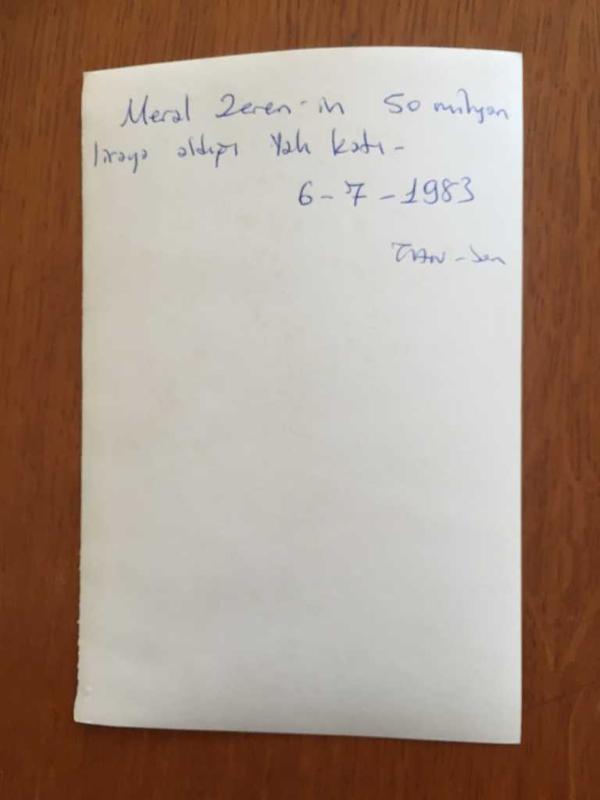 Meral Zeren-in 50 milyon
liraya aldığı Yalı katı-
6-7-1983